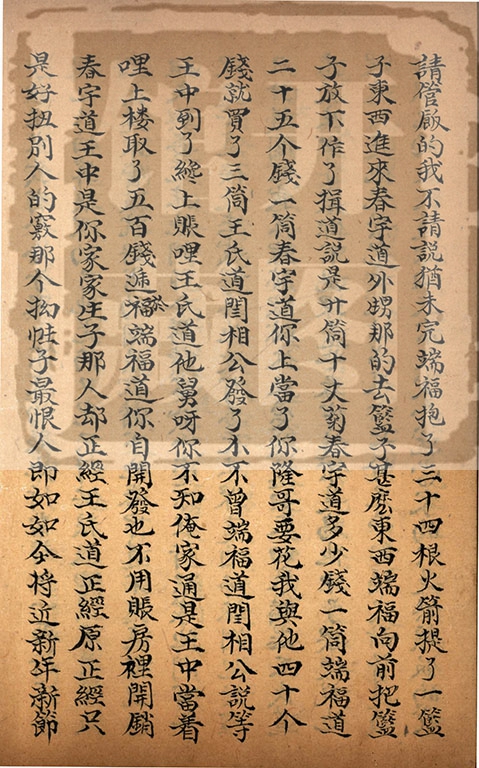 請管飯的我不請說猶未完端福抱了三十四根火箭提了一籃
子東西進來春宇道外甥那的去籃子甚麽東西端福向前把籃
子放下作了揖道說是廾筒十丈菊春宇道多少錢一筒端福道
二十五个錢一筒春宇道你上當了你隆哥要花我與他四十个
錢就買了三筒王氏道閆相公發了不曾端福道閆相公說等
王中到了總上賬哩王氏道他舅呀你不知俺家通是王中當着
哩上楼取了五百錢逓於福端福道你自開發也不用賬房裡開銷
春宇道王中是你家家生子那人却正經王氏道正經原正經只
是好扭別人的竅那个拗性子最恨人即如如今将近新年新節